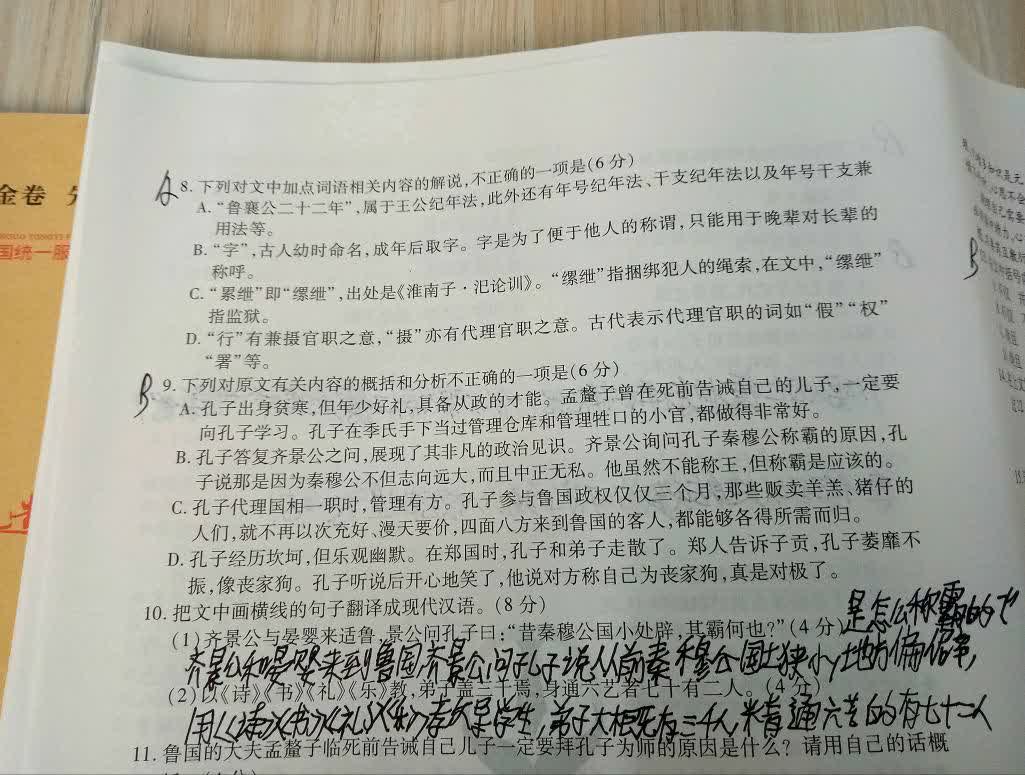 金卷
国统一服
A
8. 下列对文中加点词语相关内容的解说,不正确的一项是(6 分)
A. “鲁襄公二十二年”,属于王公纪年法,此外还有年号纪年法、干支纪年法以及年号干支兼
用法等。
B. “字”,古人幼时命名,成年后取字。字是为了便于他人的称谓,只能用于晚辈对长辈的
称呼。
C. “累绁”即“缧绁”,出处是《淮南子·汜论训》。“缧绁”指捆绑犯人的绳索,在文中,“缧绁”
指监狱。
D. “行”有兼摄官职之意,“摄”亦有代理官职之意。古代表示代理官职的词如“假”“权”
“署”等。
B
9. 下列对原文有关内容的概括和分析不正确的一项是(6 分)
A. 孔子出身贫寒,但年少好礼,具备从政的才能。孟釐子曾在死前告诫自己的儿子,一定要
向孔子学习。孔子在季氏手下当过管理仓库和管理牲口的小官,都做得非常好。
B. 孔子答复齐景公之问,展现了其非凡的政治见识。齐景公询问孔子秦穆公称霸的原因,孔
子说那是因为秦穆公不但志向远大,而且中正无私。他虽然不能称王,但称霸是应该的。
C. 孔子代理国相一职时,管理有方。孔子参与鲁国政权仅仅三个月,那些贩卖羊羔、猪仔的
人们,就不再以次充好、漫天要价,四面八方来到鲁国的客人,都能够各得所需而归。
D. 孔子经历坎坷,但乐观幽默。在郑国时,孔子和弟子走散了。郑人告诉子贡,孔子萎靡不
振,像丧家狗。孔子听说后开心地笑了,他说对方称自己为丧家狗,真是对极了。
10. 把文中画横线的句子翻译成现代汉语。(8 分)
(1)齐景公与晏婴来适鲁,景公问孔子曰:“昔秦穆公国小处辟,其霸何也?”(4 分)
是怎么称霸的
齐景公和晏婴来到鲁国,齐景公问孔子说从前秦穆公国土狭小,土地偏僻,
(2)以《诗》《书》《礼》《乐》教,弟子盖三千焉,身通六艺者七十有二人。(4 分)
用《诗》《书》《礼》《乐》学生,弟子大概有三千人,精通六艺的有七十二人
11. 鲁国的大夫孟釐子临死前告诫自己儿子一定要拜孔子为师的原因是什么?请用自己的话概
B